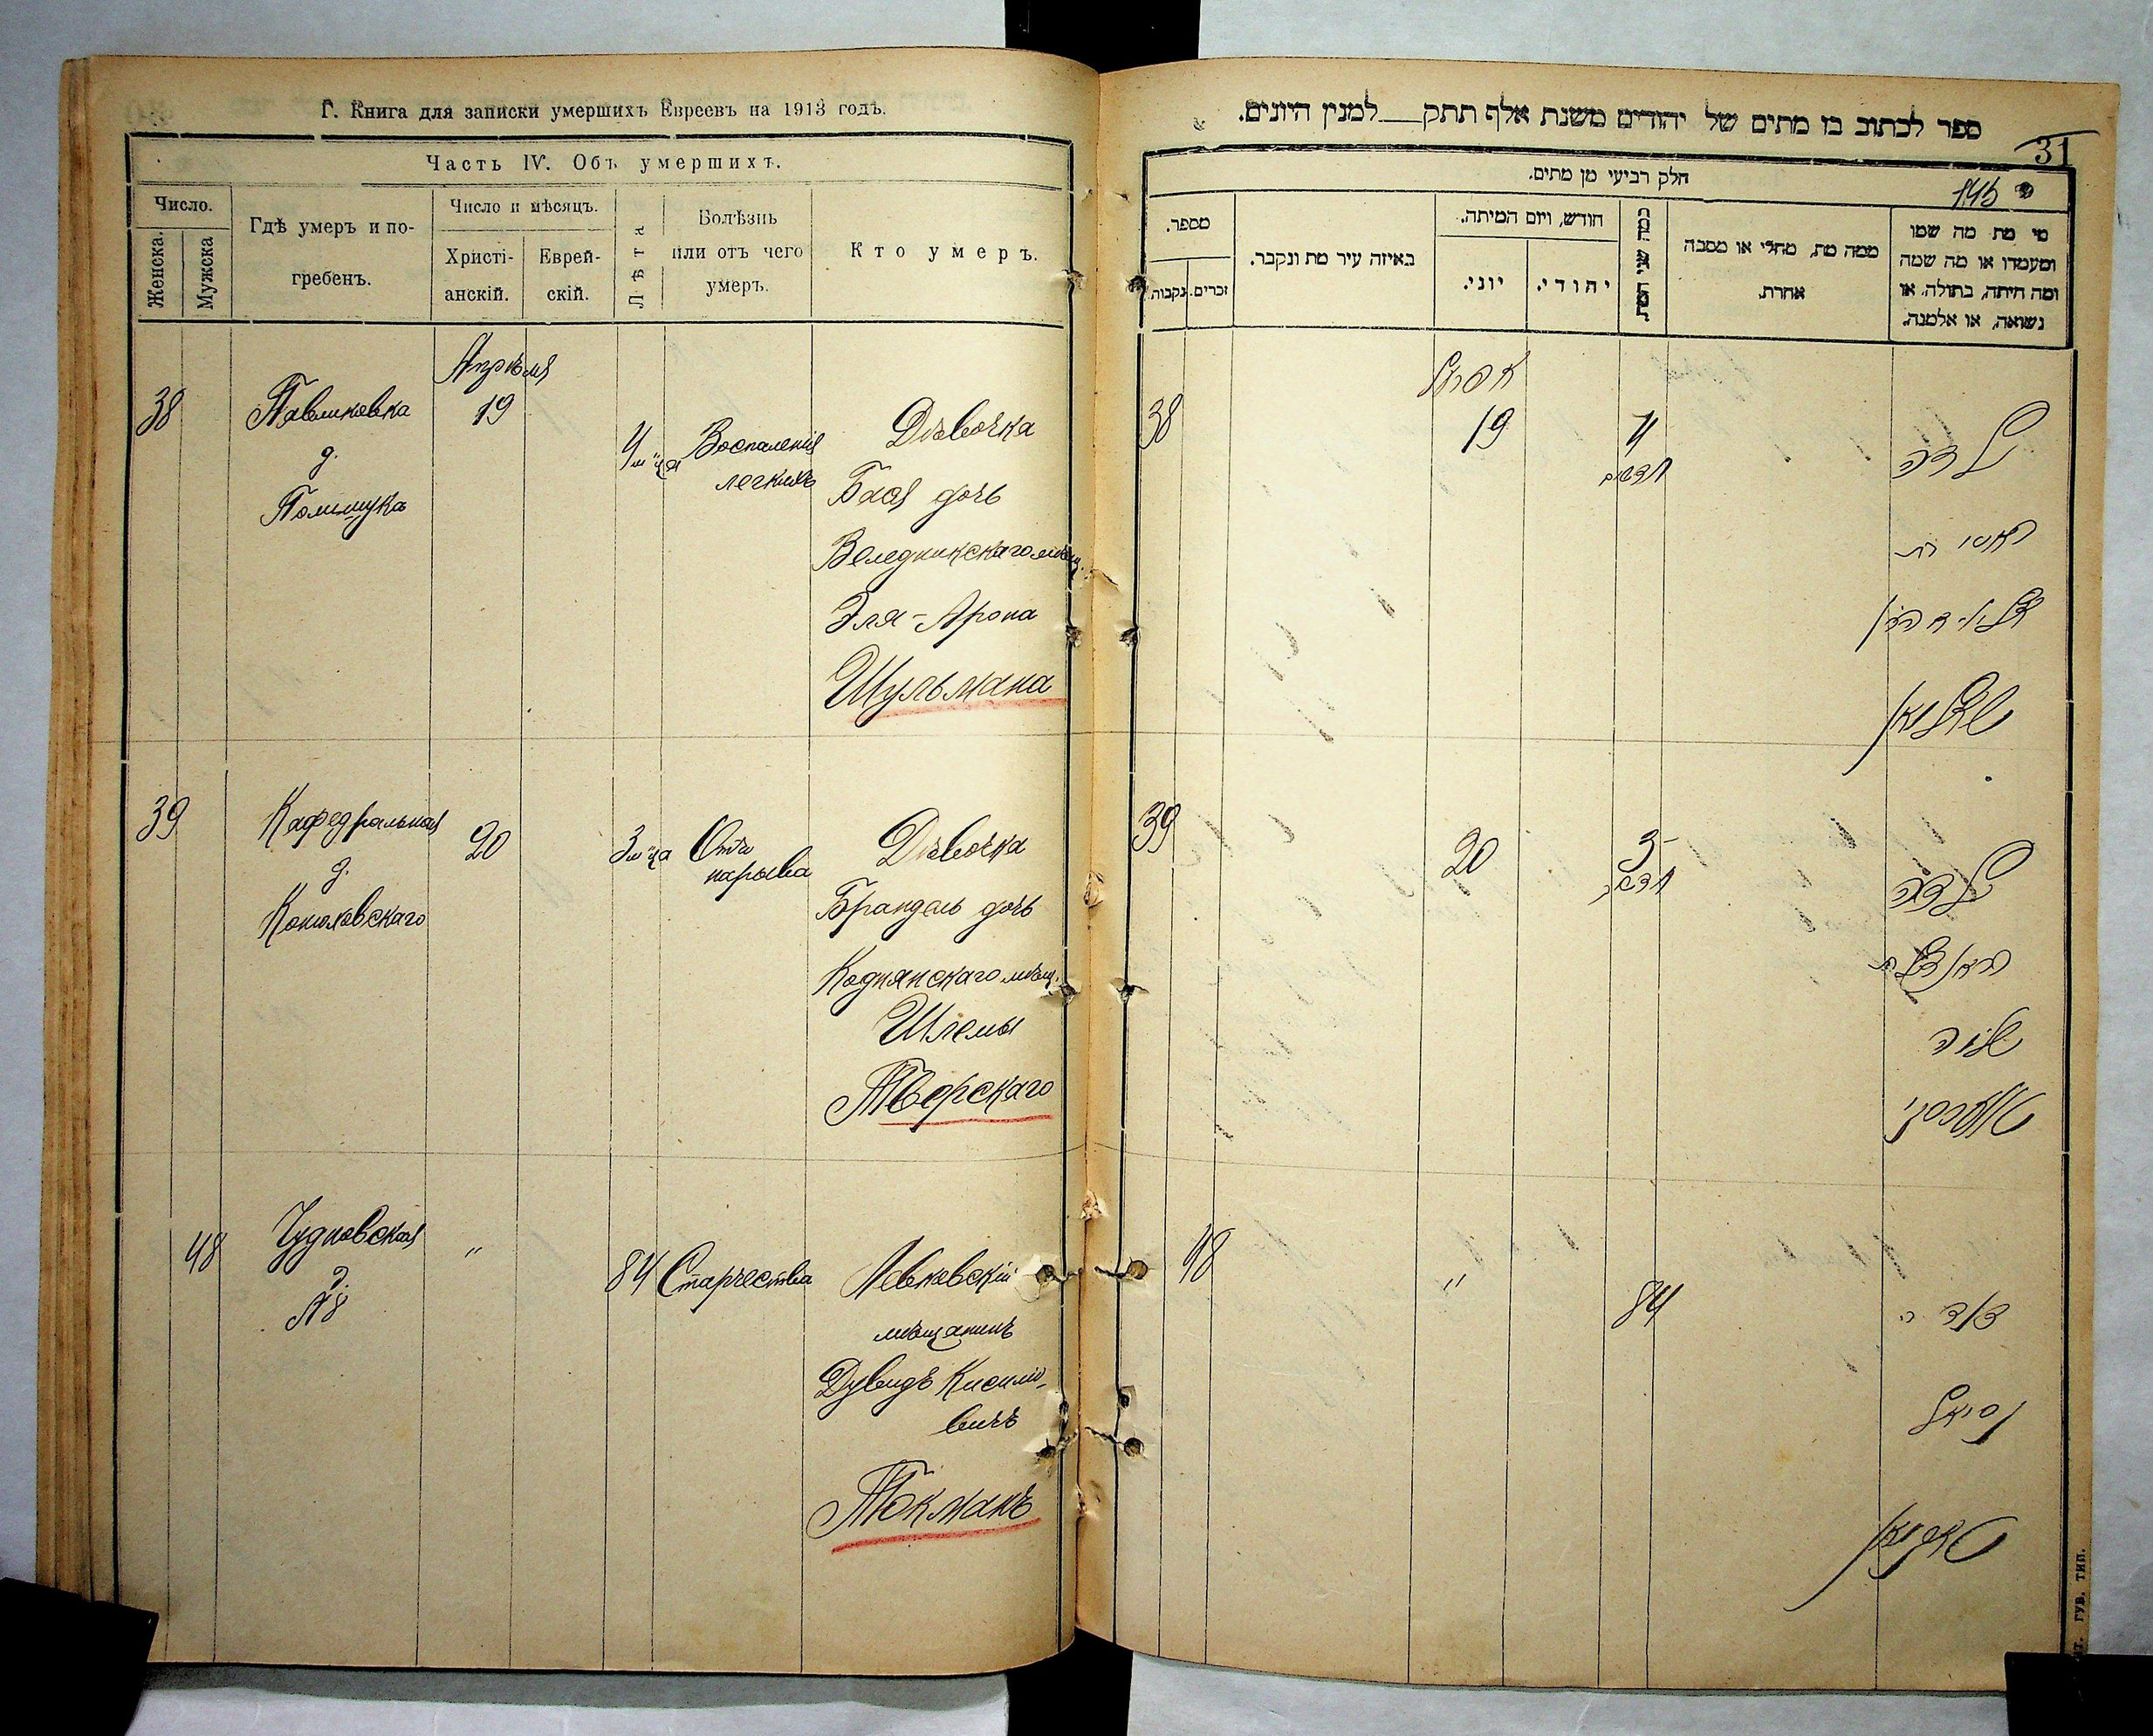 Г. Книга для записки умершихъ Евреевъ на 1913 годъ.
Часть IV. Объ умершихъ.
Число.
Женска.
Мужска
Гдѣ умеръ и по-
гребенъ.
Число и мѣсяцъ.
Христі-
анскій.
Еврей-
скій.
Лѣта
Болѣзнь
или отъ чего
умеръ.
Кто умеръ.
Апрѣля
38
Павликовка
д.
Полищука
19
4 м-ца
Воспаленія
легкихъ
Дѣвочка
Бася дочь
Веледникскаго мѣщ.
Эля-Арона
Шульмана
39
Кафедральная
д.
Конюховскаго
20
3 м-ца
Отъ
нарыва
Дѣвочка
Брандель дочь
Коднянскаго мѣщ.
Шлемы
Тверскаго
48
Чудновская
д.
№8
"
84
Старчества
Левковскій
мѣщанинъ
Дувидъ Кисилю-
вичъ
Токманъ
ספר לכתוב בו מתים של יהודים משנת אלף תתק למנין היונים.
31
145
חלק רביעי מן מתים.
מספר.
נקבות.
זכרים.
באיזה עיר מת ונקבר.
חודש, ויום המיתה.
יוני.
יהודי.
כמה שני המת
ממה מת, מחלי או מסבה
אחרת.
מי מת מה שמו
ומעמדו או מה שמה
ומה היתה, בתולה, או
נשואה, או אלמנה.
אפריל
38
19
4
חדשים
ילדה
באסי בת
אלי׳ אהרן
שולמאן
39
20
3
חדשים
ילדה
בראנדל בת
שלמה
טווערסקי
48
"
84
דוד ב
יקותיאל
טאקמאן
гув. тип.